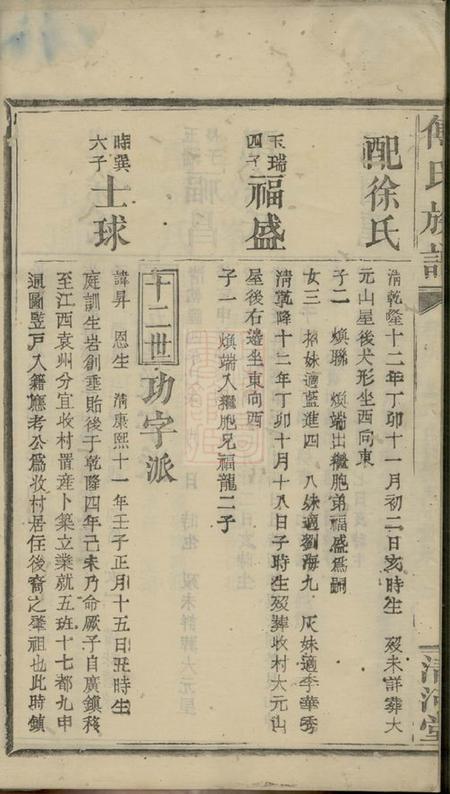 傅氏族譜
清河堂
配徐氏
清乾隆十二年丁卯十一月初二日亥時生 歿未詳葬大
元山屋後犬形坐西向東
子二 煥聯 煥端出繼胞弟福盛為嗣
女三 招妹適藍進四 八妹適劉海九 厌妹適李華秀
玉瑞
四子
福盛
清乾隆十二年丁卯十月十八日子時生歿葬收村大元山
屋後右邊坐東向西
子一 煥端入繼胞兄福龍二子
十二世 功字派
時巽
六子
士球
諱昇 恩生 清康熙十一年壬子正月十五日丑時生
庭訓生岩創垂貽後于乾隆四年己未乃命厥子自廣鎮移
至江西袁州分宜收村置産卜築立業就五班十七都九申
通圖竖戸入籍應考公為收村居住後裔之肇祖也此時鎮